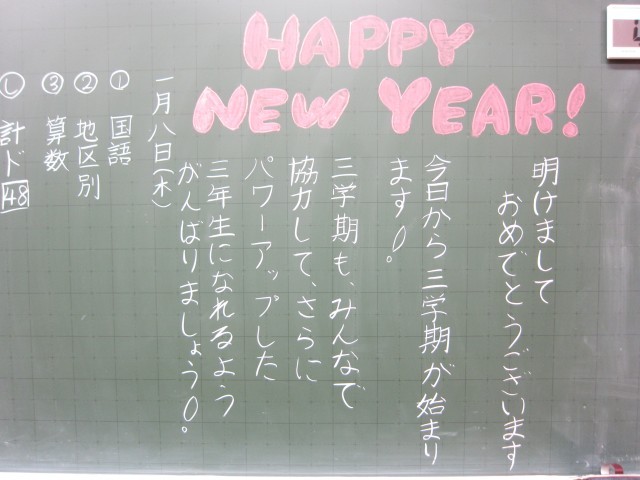 HAPPY
NEW YEAR!
明けまして
おめでとうございます
今日から三学期が始まり
ます!。
三学期も、みんなで
協力して、さらに
パワーアップした
三年生になれるよう
がんばりましょう!。
一月八日(木)
① 国語
② 地区別
③ 算数
し 計ド48